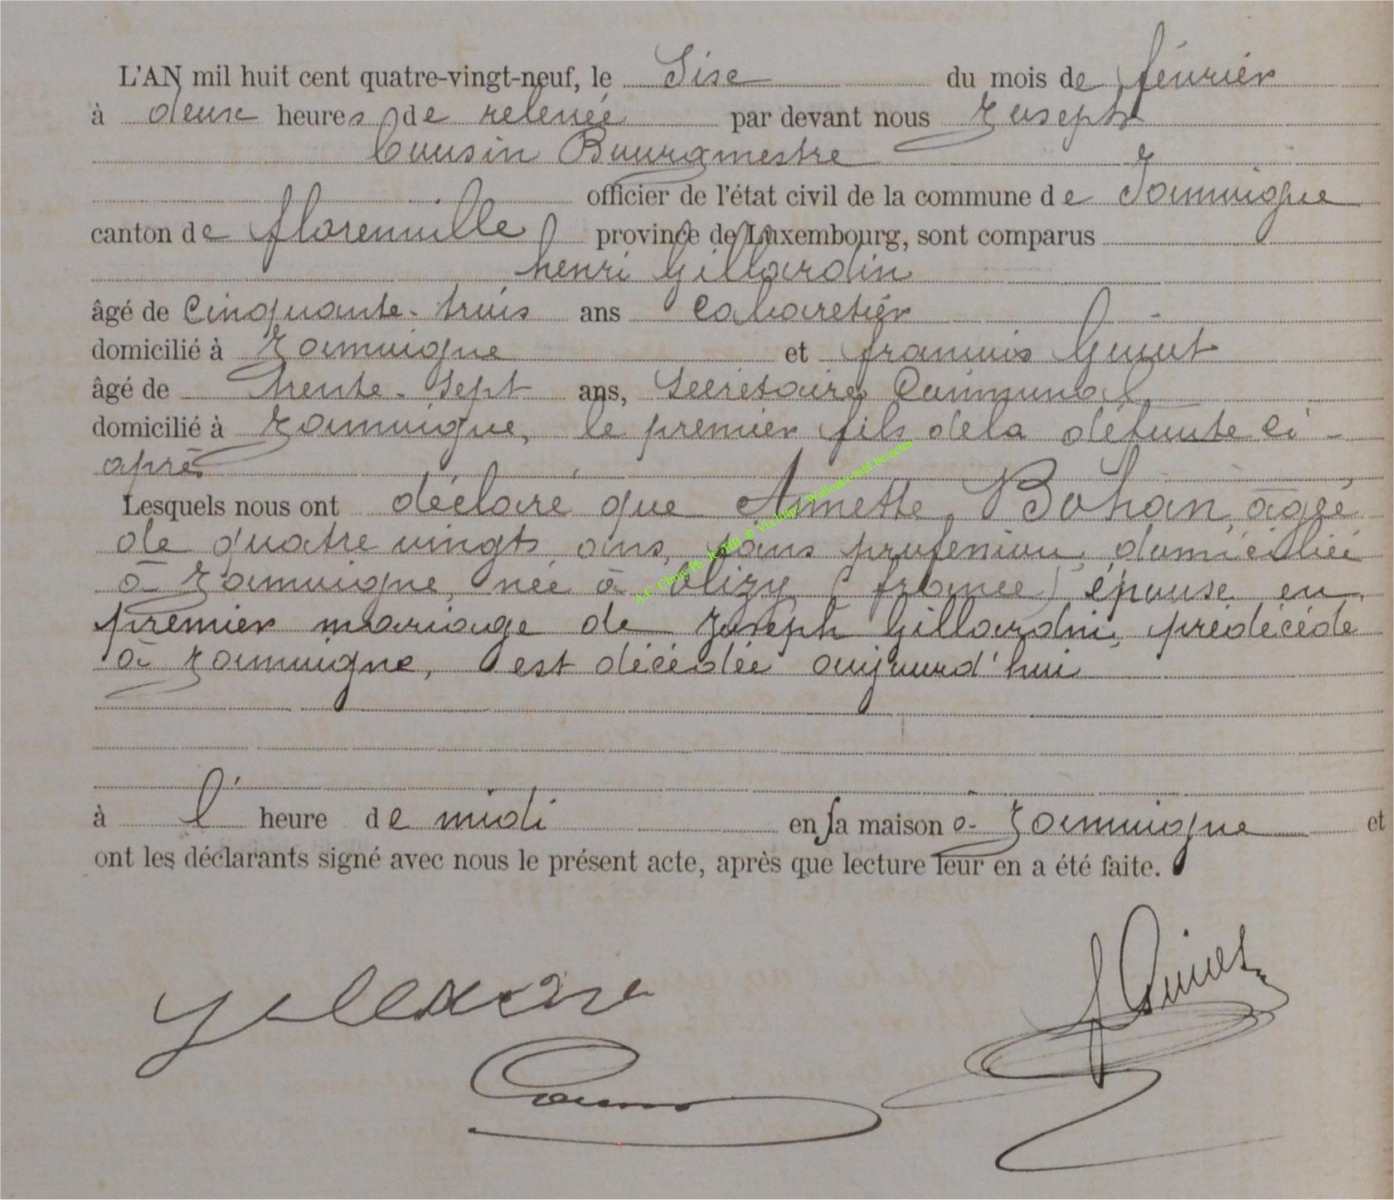 L'AN mil huit cent quatre-vingt-neuf, le Sise du mois de février
à deux heures de relevée par devant nous Joseph
Cousin Bourgmestre
officier de l'état civil de la commune de Jamoigne
canton de florenville province de Luxembourg, sont comparus
henri Gillardin
âgé de Cinquante-trois ans Cabaretier
domicilié à Jamoigne et francois Guiot
âgé de trente-sept ans, Secrétaire Communal,
domicilié à Jamoigne, le premier fils de la défunte ci-
après
Lesquels nous ont déclaré que Annette Bohan, agée
de quatre vingts ans, sans profession, domiciliée
à Jamoigne, née à olizy (france) épouse en
premier mariage de Joseph Gillardin, prédécédé
à Jamoigne, est décédée aujourd'hui
à l' heure de midi en sa maison à Jamoigne et
ont les déclarants signé avec nous le présent acte, après que lecture leur en a été faite.
f Guiot